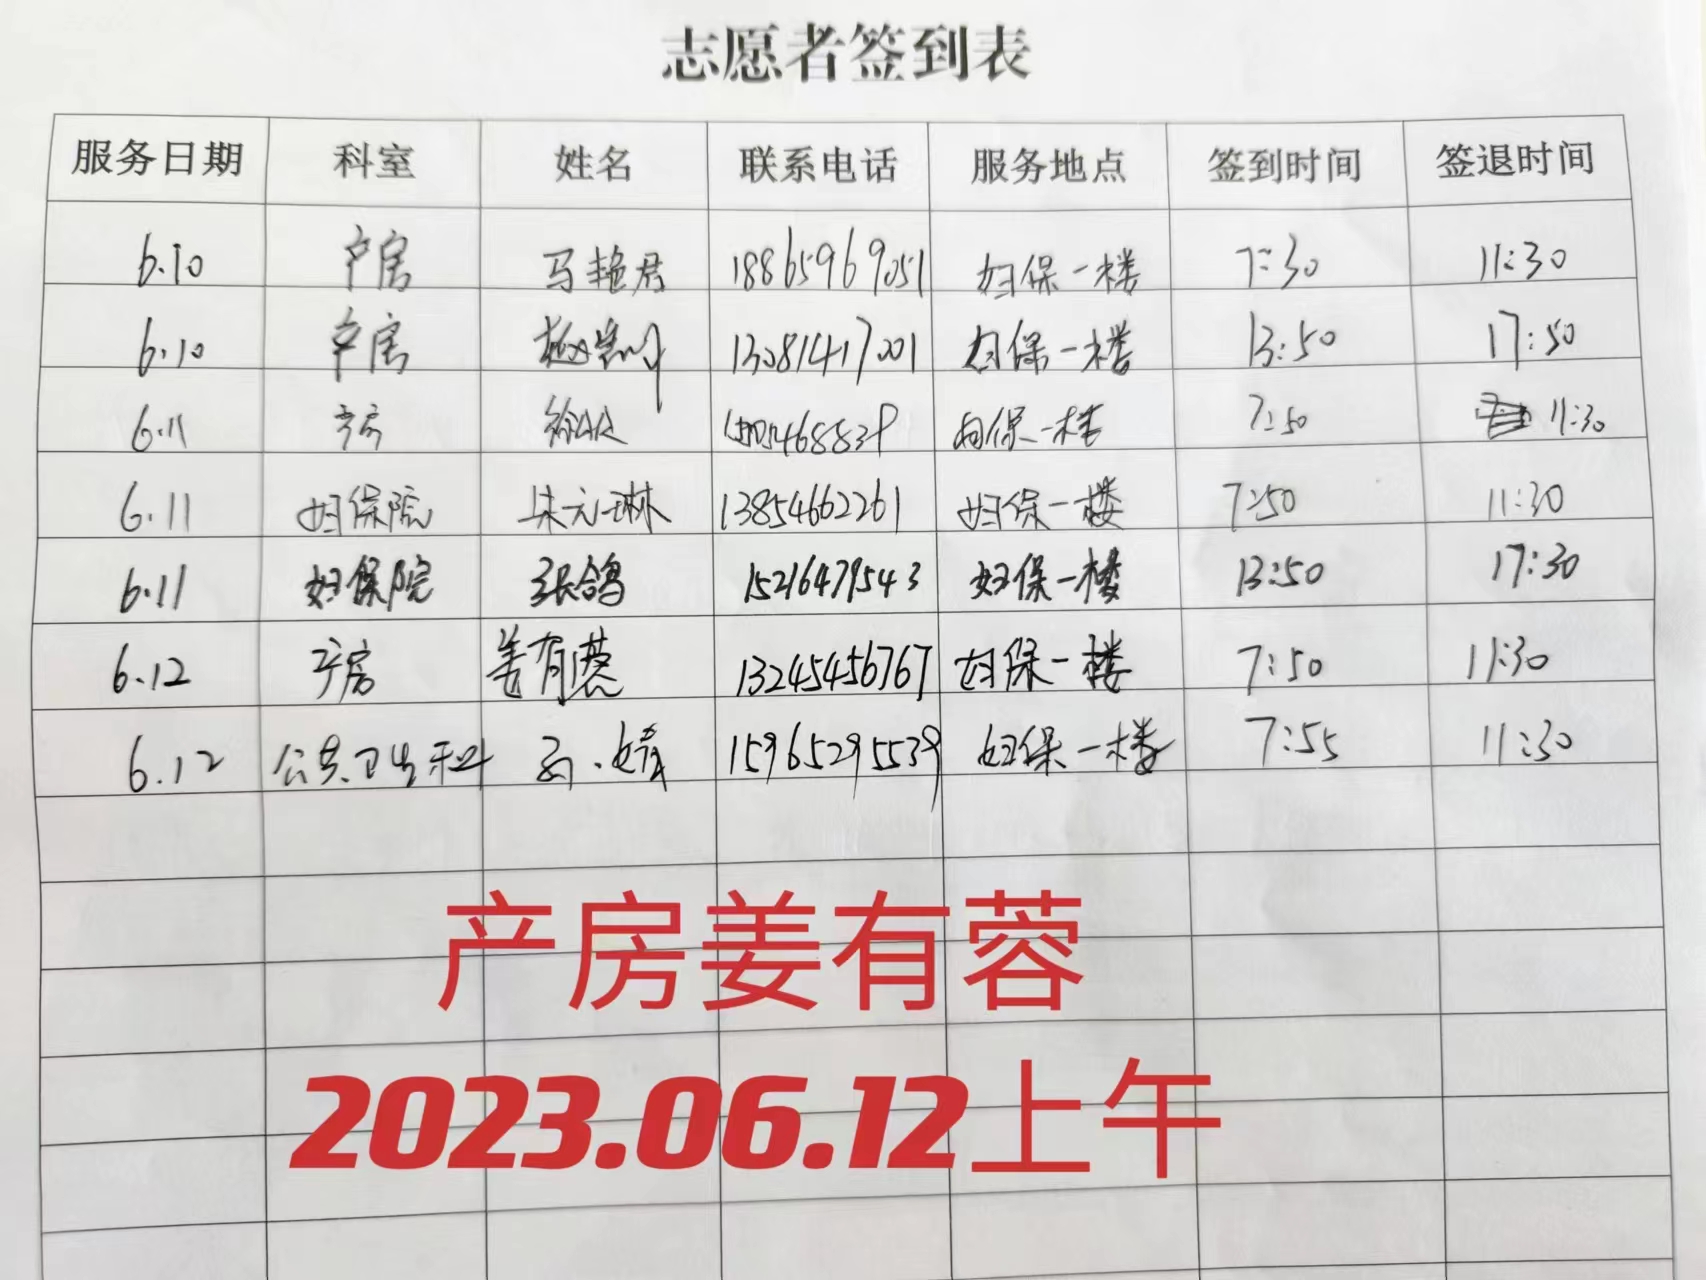 志愿者签到表
服务日期 科室 姓名 联系电话 服务地点 签到时间 签退时间
6.10 产房 马艳君 18865969051 妇保一楼 7:30 11:30
6.10 产房 13081417001 妇保一楼 13:50 17:50
6.11 产房 妇保一楼 7:50 11:30
6.11 妇保院 朱元琳 13854662261 妇保一楼 7:50 11:30
6.11 妇保院 张鸽 15216479543 妇保一楼 13:50 17:30
6.12 产房 姜有蓉 13245456767 妇保一楼 7:50 11:30
6.12 公共卫生科 孙婧 15965295539 妇保一楼 7:55 11:30
产房姜有蓉
2023.06.12上午